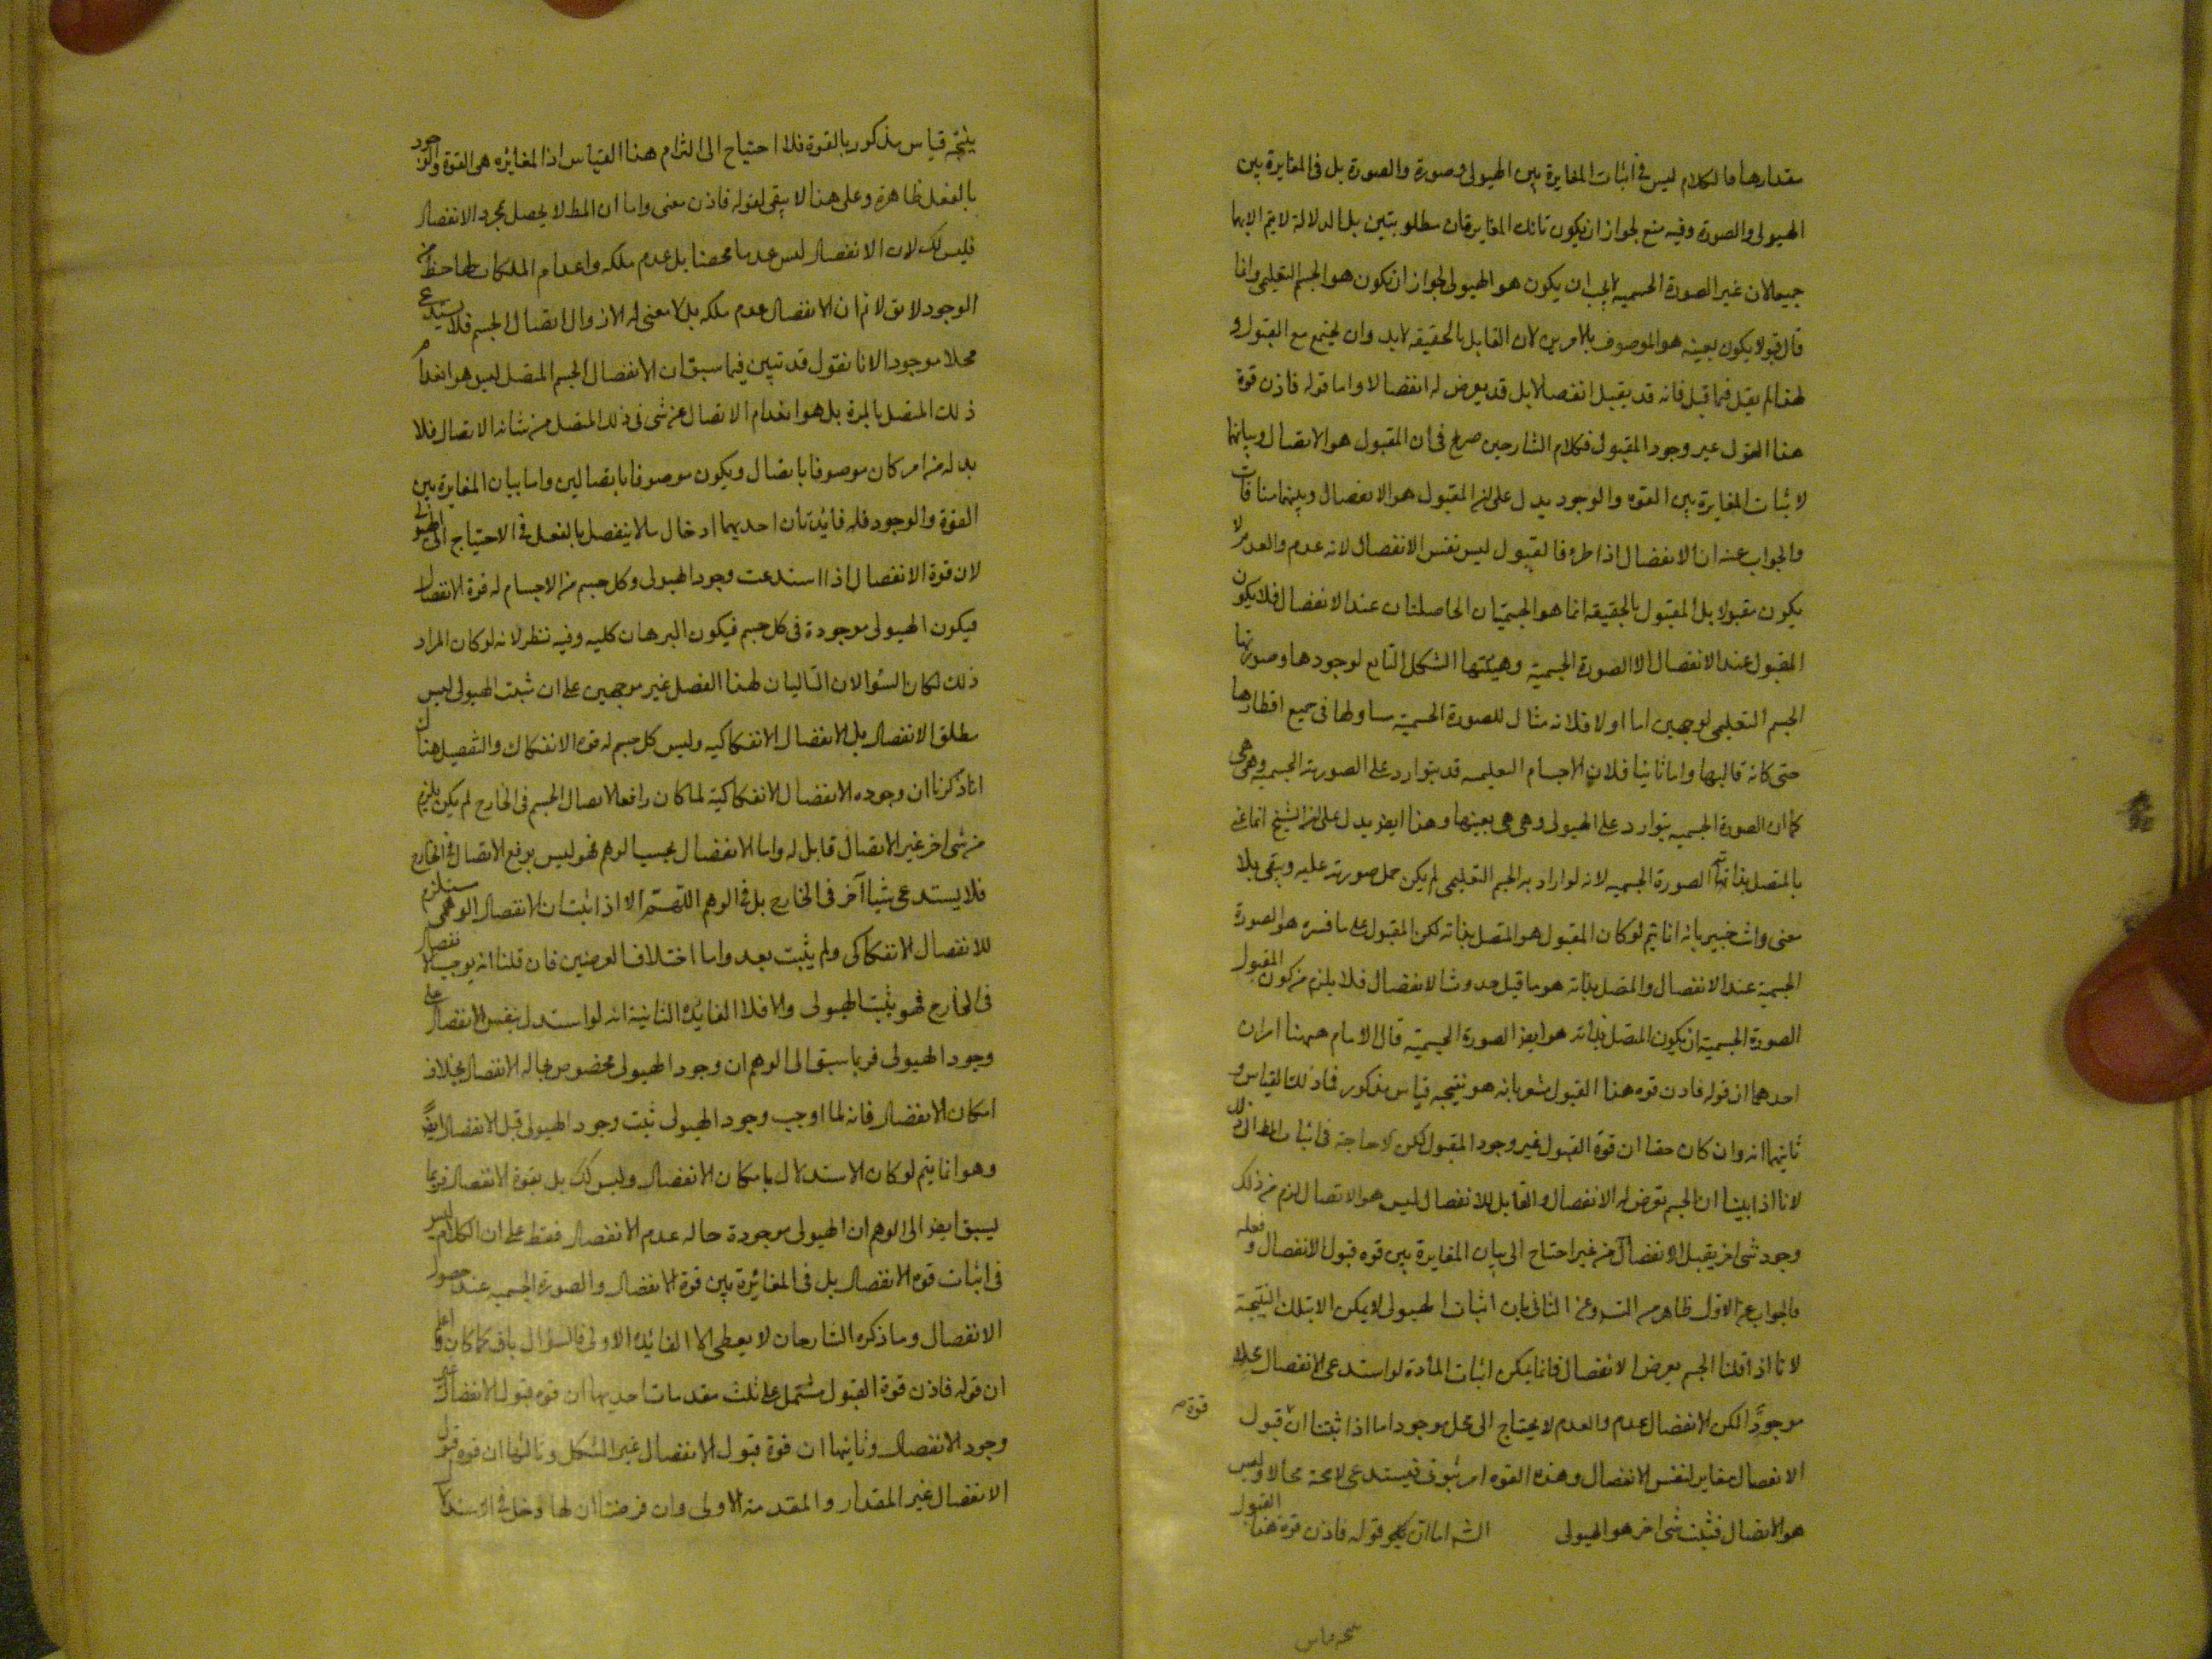 مقدارها فالكلام ليس فى اثبات المغايرة بين الهيولى وصورة والصورة بل فى المغايرة بين
الهيولى والصورة وفيه منع لجواز ان يكون تانك المغايرتان مطلوبتين بل الدلالة لا يتم الا بهما
جميعا لان غير الصورة الجسمية لا يجب ان يكون هو الهيولى لجواز ان تكون هو الجسم التعليمى وانما
قال قبولا يكون بعينه هو الموصوف بالامرين لان القابل بالحقيقه لابد وان يجتمع مع المقبول و
لهذا لم يقل فيما قبل فانه قد يقبل انفصالا بل قد يعرض له انفصالا واما قوله فاذن قوة
هذا القول غير وجود المقبول فكلام الشارحين صريح فى ان المقبول هو الاتصال وبيانها
لاثبات المغايرة بين القوه والوجود يدل على ان المقبول هو الانفصال وبينهما منافات
والجواب عنه ان الانفصال اذا طره فالقبول ليس نفس الانفصال لانه عدم والعدم لا
يكون مقبولا بل المقبول بالحقيقه انما هو الجسميتان الحاصلتان عند الانفصال فلا يكون
المقبول عند الانفصال الا الصورة الجسمية وهيئتها الشكل التابع لوجودها وصورتها
الجسم التعليمى لوجهين اما اولا فلانه مثال للصورة الجسمية مساو لها فى جميع اقطارها
حتى كانه قالبها واما ثانيا فلان الاجسام التعليميه قد يتوارد على الصورة الجسميه وهى هى
كما ان الصورة الجسميه يتوارد على الهيولى وهى هى بعينها وهذا ايضا يدل على ان الشيخ انما عنى
بالمتصل بذاته الصورة الجسميه لانه لو اراد به الجسم التعليمى لم يكن حمل صورته عليه ويبقى بلا
معنى وانت خبير بانه انما يتم لو كان المقبول هو المتصل بذاته لكن المقبول على ما فسره هو الصورة
الجسمية عند الانفصال والمتصل بذاته هو ما قبل حدوث الانفصال فلا يلزم من كون المقبول
الصورة الجسمية ان يكون المتصل بذاته هو ايضا الصورة الجسمية قال الامام ههنا امران
احدهما ان قوله فاذن قوه هذا القبول مشعر بانه هو نتيجه قياس مذكور فما ذلك القياس و
ثانيهما انه وان كان حقا ان قوة القبول غير وجود المقبول لكن لا حاجة فى اثبات المط الى ذلك
لانا اذا بينا ان الجسم يعرض له الانفصال والقابل للانفصال ليس هو الاتصال لزم من ذلك
وجود شى اخر يقبل الانفصال من غير احتياج الى بيان المغايرة بين قوه قبول الانفصال و فعله
فالجواب عن الاول ظاهر من الشرح وعن الثانى بان اثبات الهيولى لا يمكن الا بتلك النتيجة
لانا اذا قلنا الجسم يعرض الانفصال فانما يمكن اثبات المادة لو استدعى الانفصال محلا
موجودا لكن الانفصال عدم والعدم لا يحتاج الى محل موجود اما اذا اثبتنا ان قبول
قوة
الانفصال مغاير لنفس الانفصال وهذه القوه امر ثبوتى فيستدعى لا محة محالا وليس
هو الاتصال فثبت شى اخر هو الهيولى
قوله فاذن قوة هذا القبول
ينتجه قياس مذكور بالقوة فلا احتياج الى التزام هذا القياس اذ المغايره هى القوة والوجود
بالفعل ظاهرة وعلى هذا لا يبقى لقوله فاذن معنى واما ان المط لا يحصل بمجرد الانفصال
فليس كك لان الانفصال ليس عدما محضا بل عدم ملكه واعدام الملكات لها حظ من
الوجود لا يق لا نم ان الانفصال عدم ملكه بل لا معنى له الا زوال اتصال الجسم فلا يستدعى
محلا موجودا لانا نقول قد تبين فيما سبق ان الانفصال الجسم المتصل ليس هو انعدام
ذلك المتصل بالمرة بل هو انعدام الاتصال عن شى فى ذلك المتصل من شانه الاتصال فلا
بد له من امر كان موصوفا باتصال ويكون موصوفا باتصالين واما بيان المغايرة بين
القوة والوجود فله فائدتان احديهما ادخال ما لا ينفصل بالفعل فى الاحتياج الى الهيولى
لان قوة الانفصال اذا استدعت وجود الهيولى وكل جسم من الاجسام له قوة الانفصال
فيكون الهيولى موجودة فى كل جسم فيكون البرهان كليه وفيه نظر لانه لو كان المراد
ذلك لكان السؤالان التاليان لهذا الفصل غير موجهين على ان مثبت الهيولى ليس
مطلق الانفصال بل الانفصال الانفكاكيه وليس كل جسم له قوه الانفكاك والتفصيل هنا
انا ذكرنا ان وجوده الانفصال الانفكاكية لما كان رافعا لاتصال الجسم فى الخارج لم يكن يلزم
من شى اخر غير الاتصال قابل له واما الانفصال بحسب الوهم فهو ليس يرفع الاتصال فى الخارج
فلا يستدعى شيئا آخر فى الخارج بل فى الوهم اللهم الا اذا اثبت ان الانفصال الوهمى مستلزم
للانفصال الانفكاكى ولم يثبت بعد واما اختلاف العرضين فان قلنا انه يوجب الانفصال
فى الخارج فهو يثبت الهيولى والا فلا الفائدة الثانية انه لو استدل بنفس الانفصال على
وجود الهيولى فربما سبق الى الوهم ان وجود الهيولى مخصوص بحالة الانفصال بخلاف
امكان الانفصال فانه لما اوجب وجود الهيولى ثبت وجود الهيولى قبل الانفصال ايضا
وهو انما يتم لو كان الاستدلال بامكان الانفصال وليس كك بل بقوة الانفصال فربما
يسبق ايضا الى الوهم ان الهيولى موجودة حالة عدم الانفصال فقط على ان الكلام ليس
فى اثبات قوه الانفصال بل فى المغائرة بين قوة الانفصال والصورة الجسميه عند حصول
الانفصال وما ذكره الشارحان لا يعطى الا الفائده الاولى فالسؤال باق كما كان
ان قوله فاذن قوة القبول مشتمل على ثلث مقدمات احديها ان قوه قبول الانفصال غير
وجود الانفصال وثانيها ان قوة قبول الانفصال غير الشكل وثالثها ان قوه قبول
الانفصال غير المقدار والمقدمة الاولى وان فرضنا ان لها دخل فى